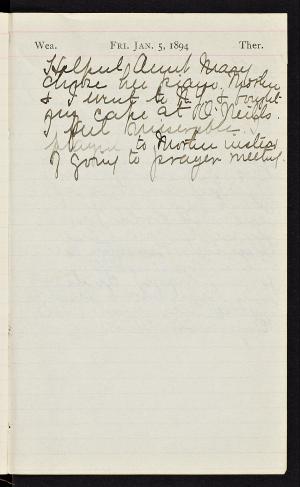 Wea. FRI. JAN. 5, 1894 Ther.
Helped Aunt Mary
chose her piano. Mother
& I went to & bought
my cape at O'Neills.
I feel miserable.
to Mother instead
of going to prayer meeting.